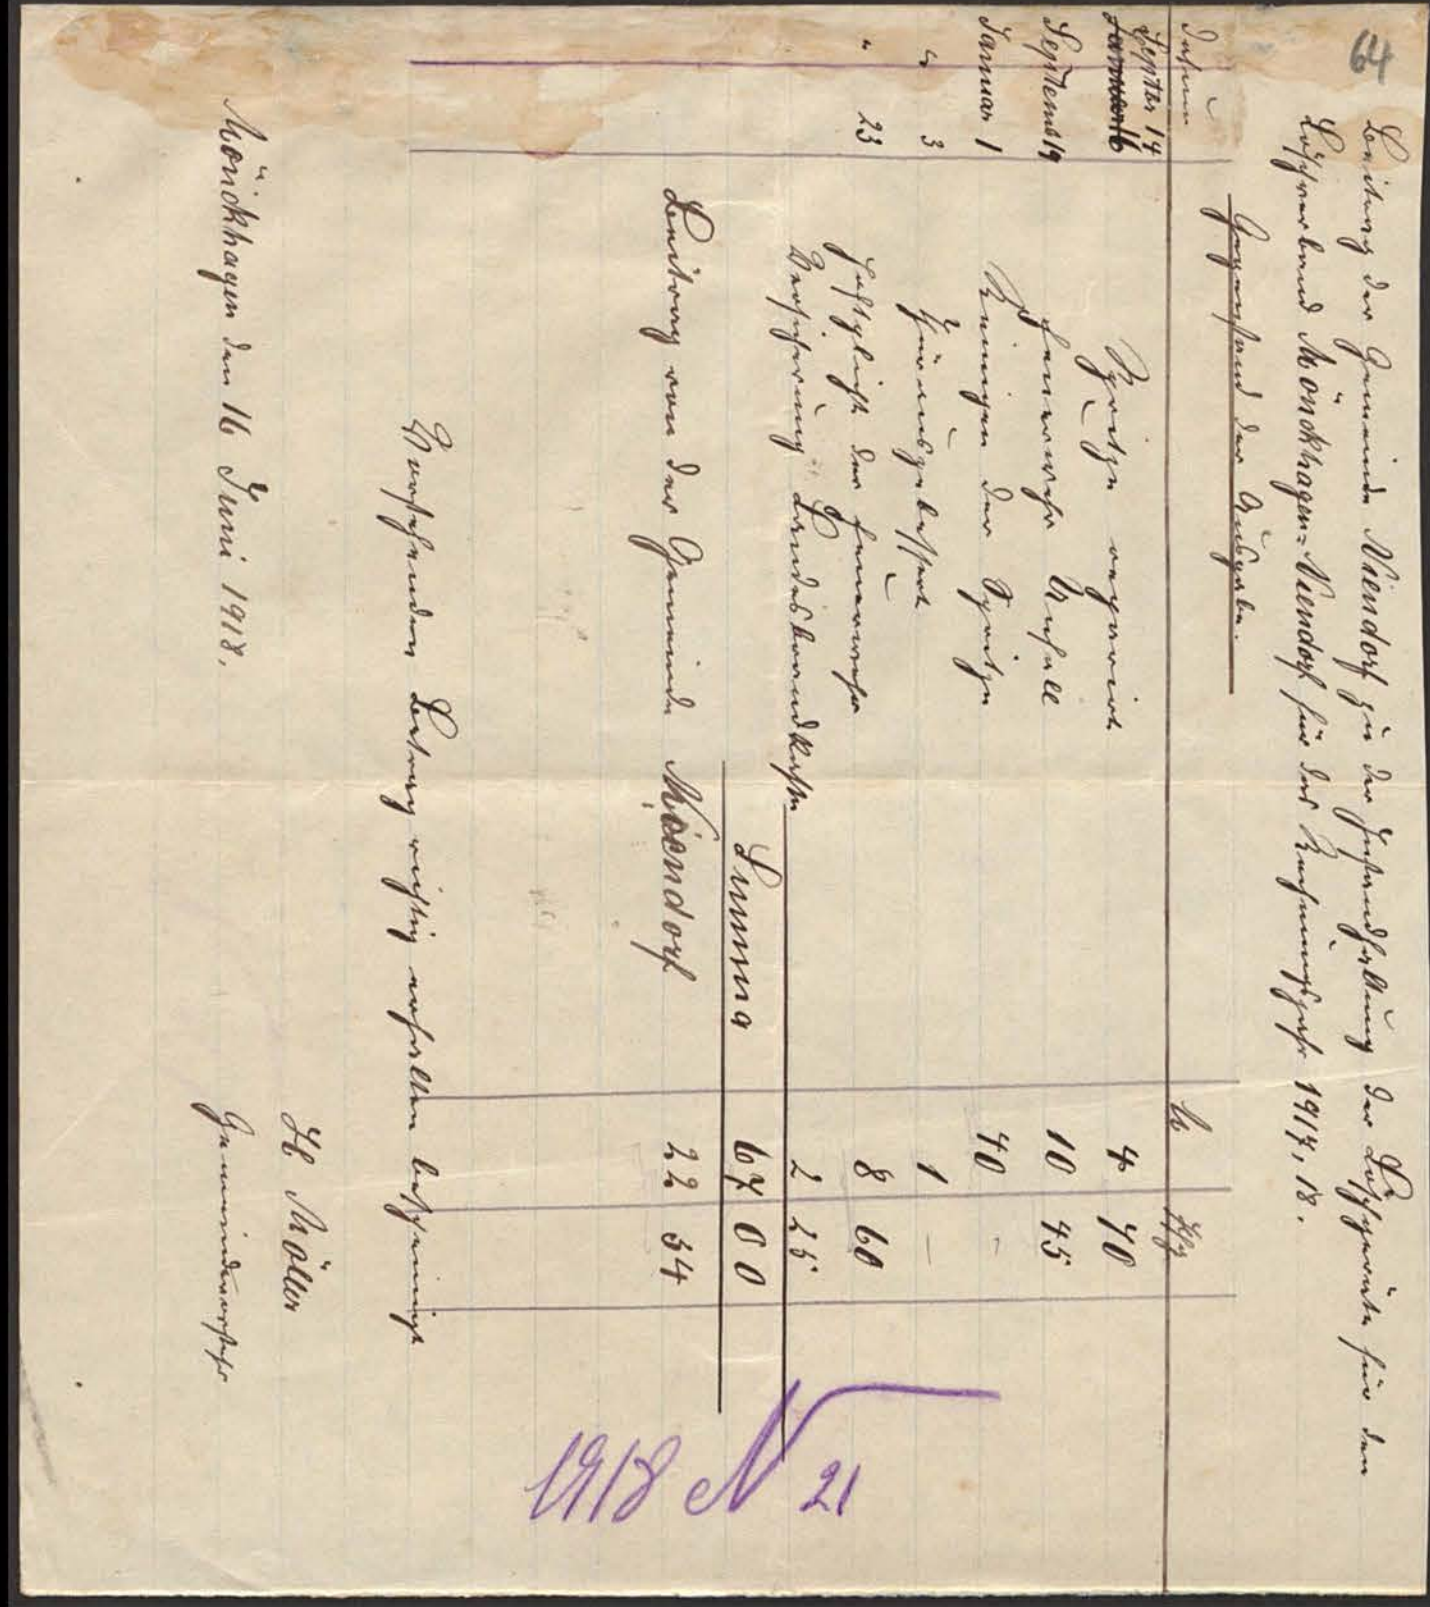 64
Beitrag der Gemeinde Niendorf zu der Instandhaltung der Löschgeräte für den
Löschverband Mönckhagen=Niendorf für das Rechnungsjahr 1917/18.
Datum Gegenstand der Ausgabe. M Pfg
Septbr 14 Spritze reparirt 4 70
Septemb 19 Feuerwehr Unfall 10 45
Januar 1 Reinigen der Spritze 40 -
" 3 ausgebessert 1 -
" 23 Haftpflicht der Feuerwehr 8 60
Versicherung Landesbrandkasse 2 25
Summa 67 00
Beitrag von der Gemeinde Niendorf 22 34
Vorstehenden Betrag richtig erhalten bescheinigt
Mönckhagen den 16 Juni 1918.
H Möller
Gemeindevorsteher
1918 N 21